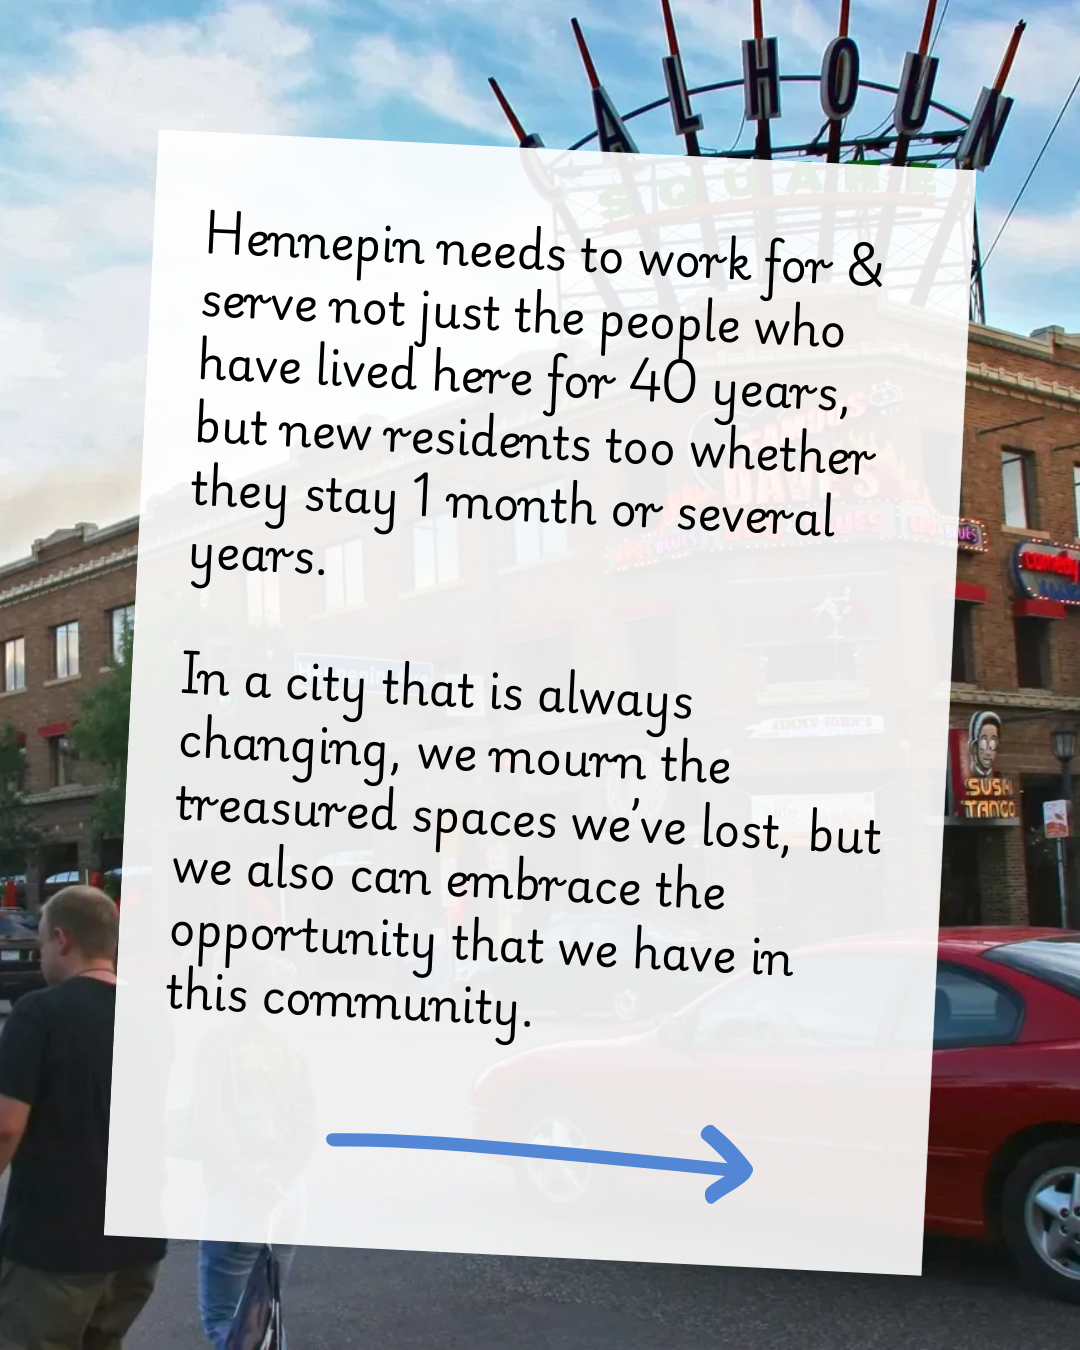 CALHOUN
SQUARE
Hennepin needs to work for &
serve not just the people who
have lived here for 40 years,
but new residents too whether
they stay 1 month or several
years.
In a city that is always
changing, we mourn the
treasured spaces we've lost, but
we also can embrace the
opportunity that we have in
this community.
FAMOUS
DAVE'S
BBQ BLUES
BLUES BBQ
BLUES
comedy
Hennepin Av
JIMMY JOHN'S
SUSHI
TANGO
life